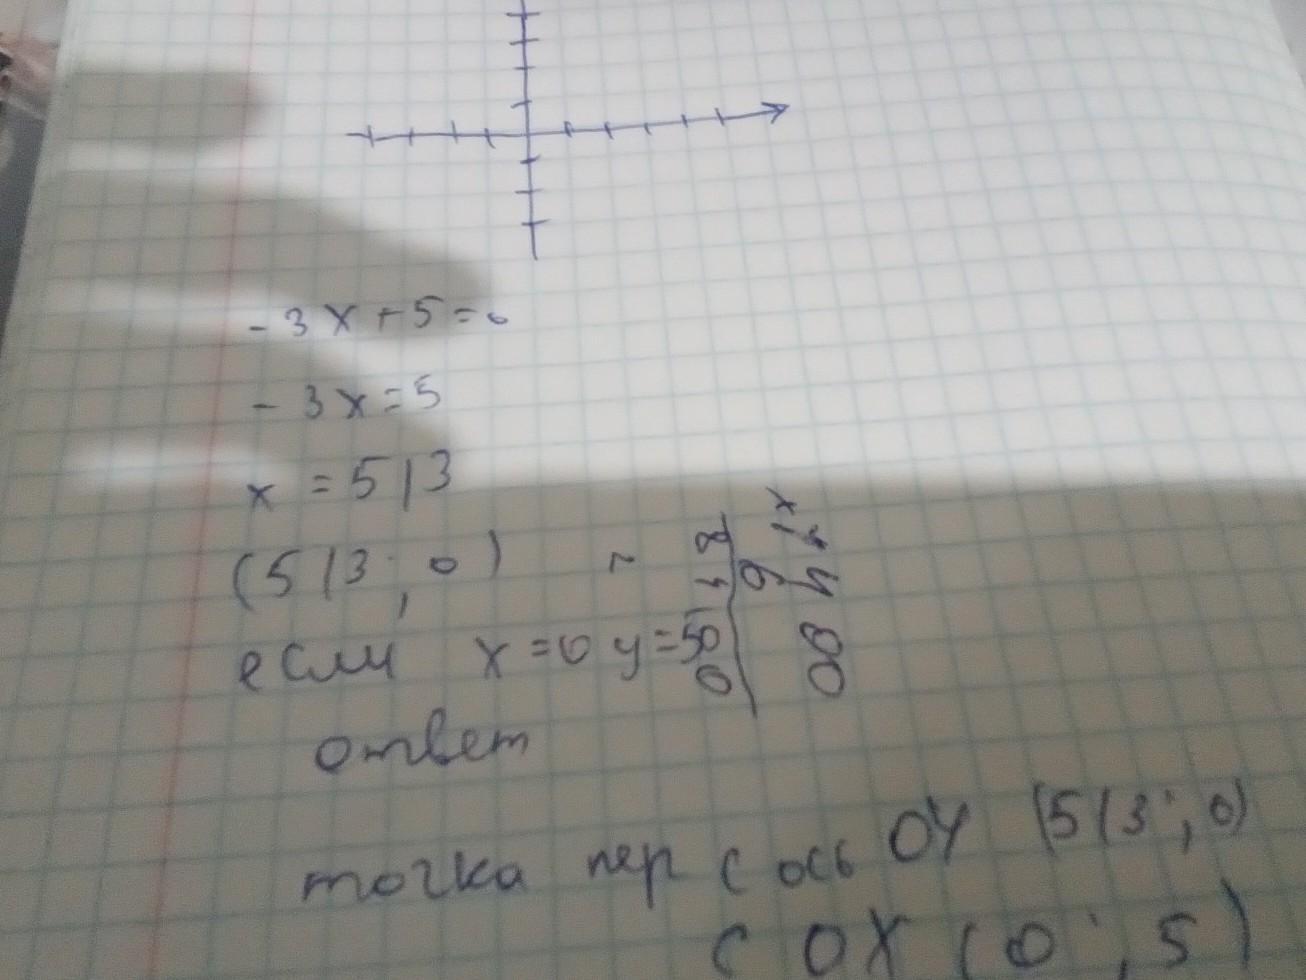 -3x+5=0
-3x=5
x=5/3
(5/3; 0)
если x=0 y=5
ответ
точка пер с ось OY (5/3; 0)
с OX (0; 5)